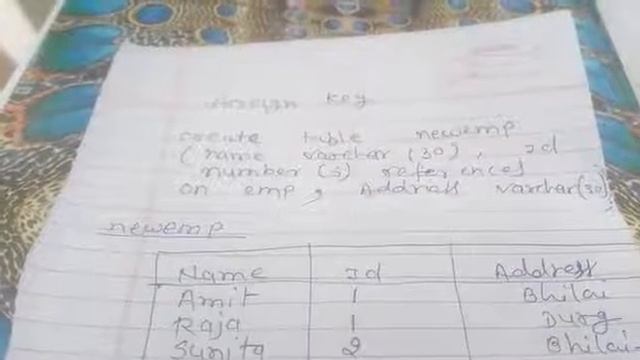 Foreign Key
create table newemp
( name varchar (30), Id
number (5) references
on emp, Address varchar(30)
newemp
Name Id Address
Amit 1 Bhilai
Raja 1 Durg
Sunita 2 Bhilai